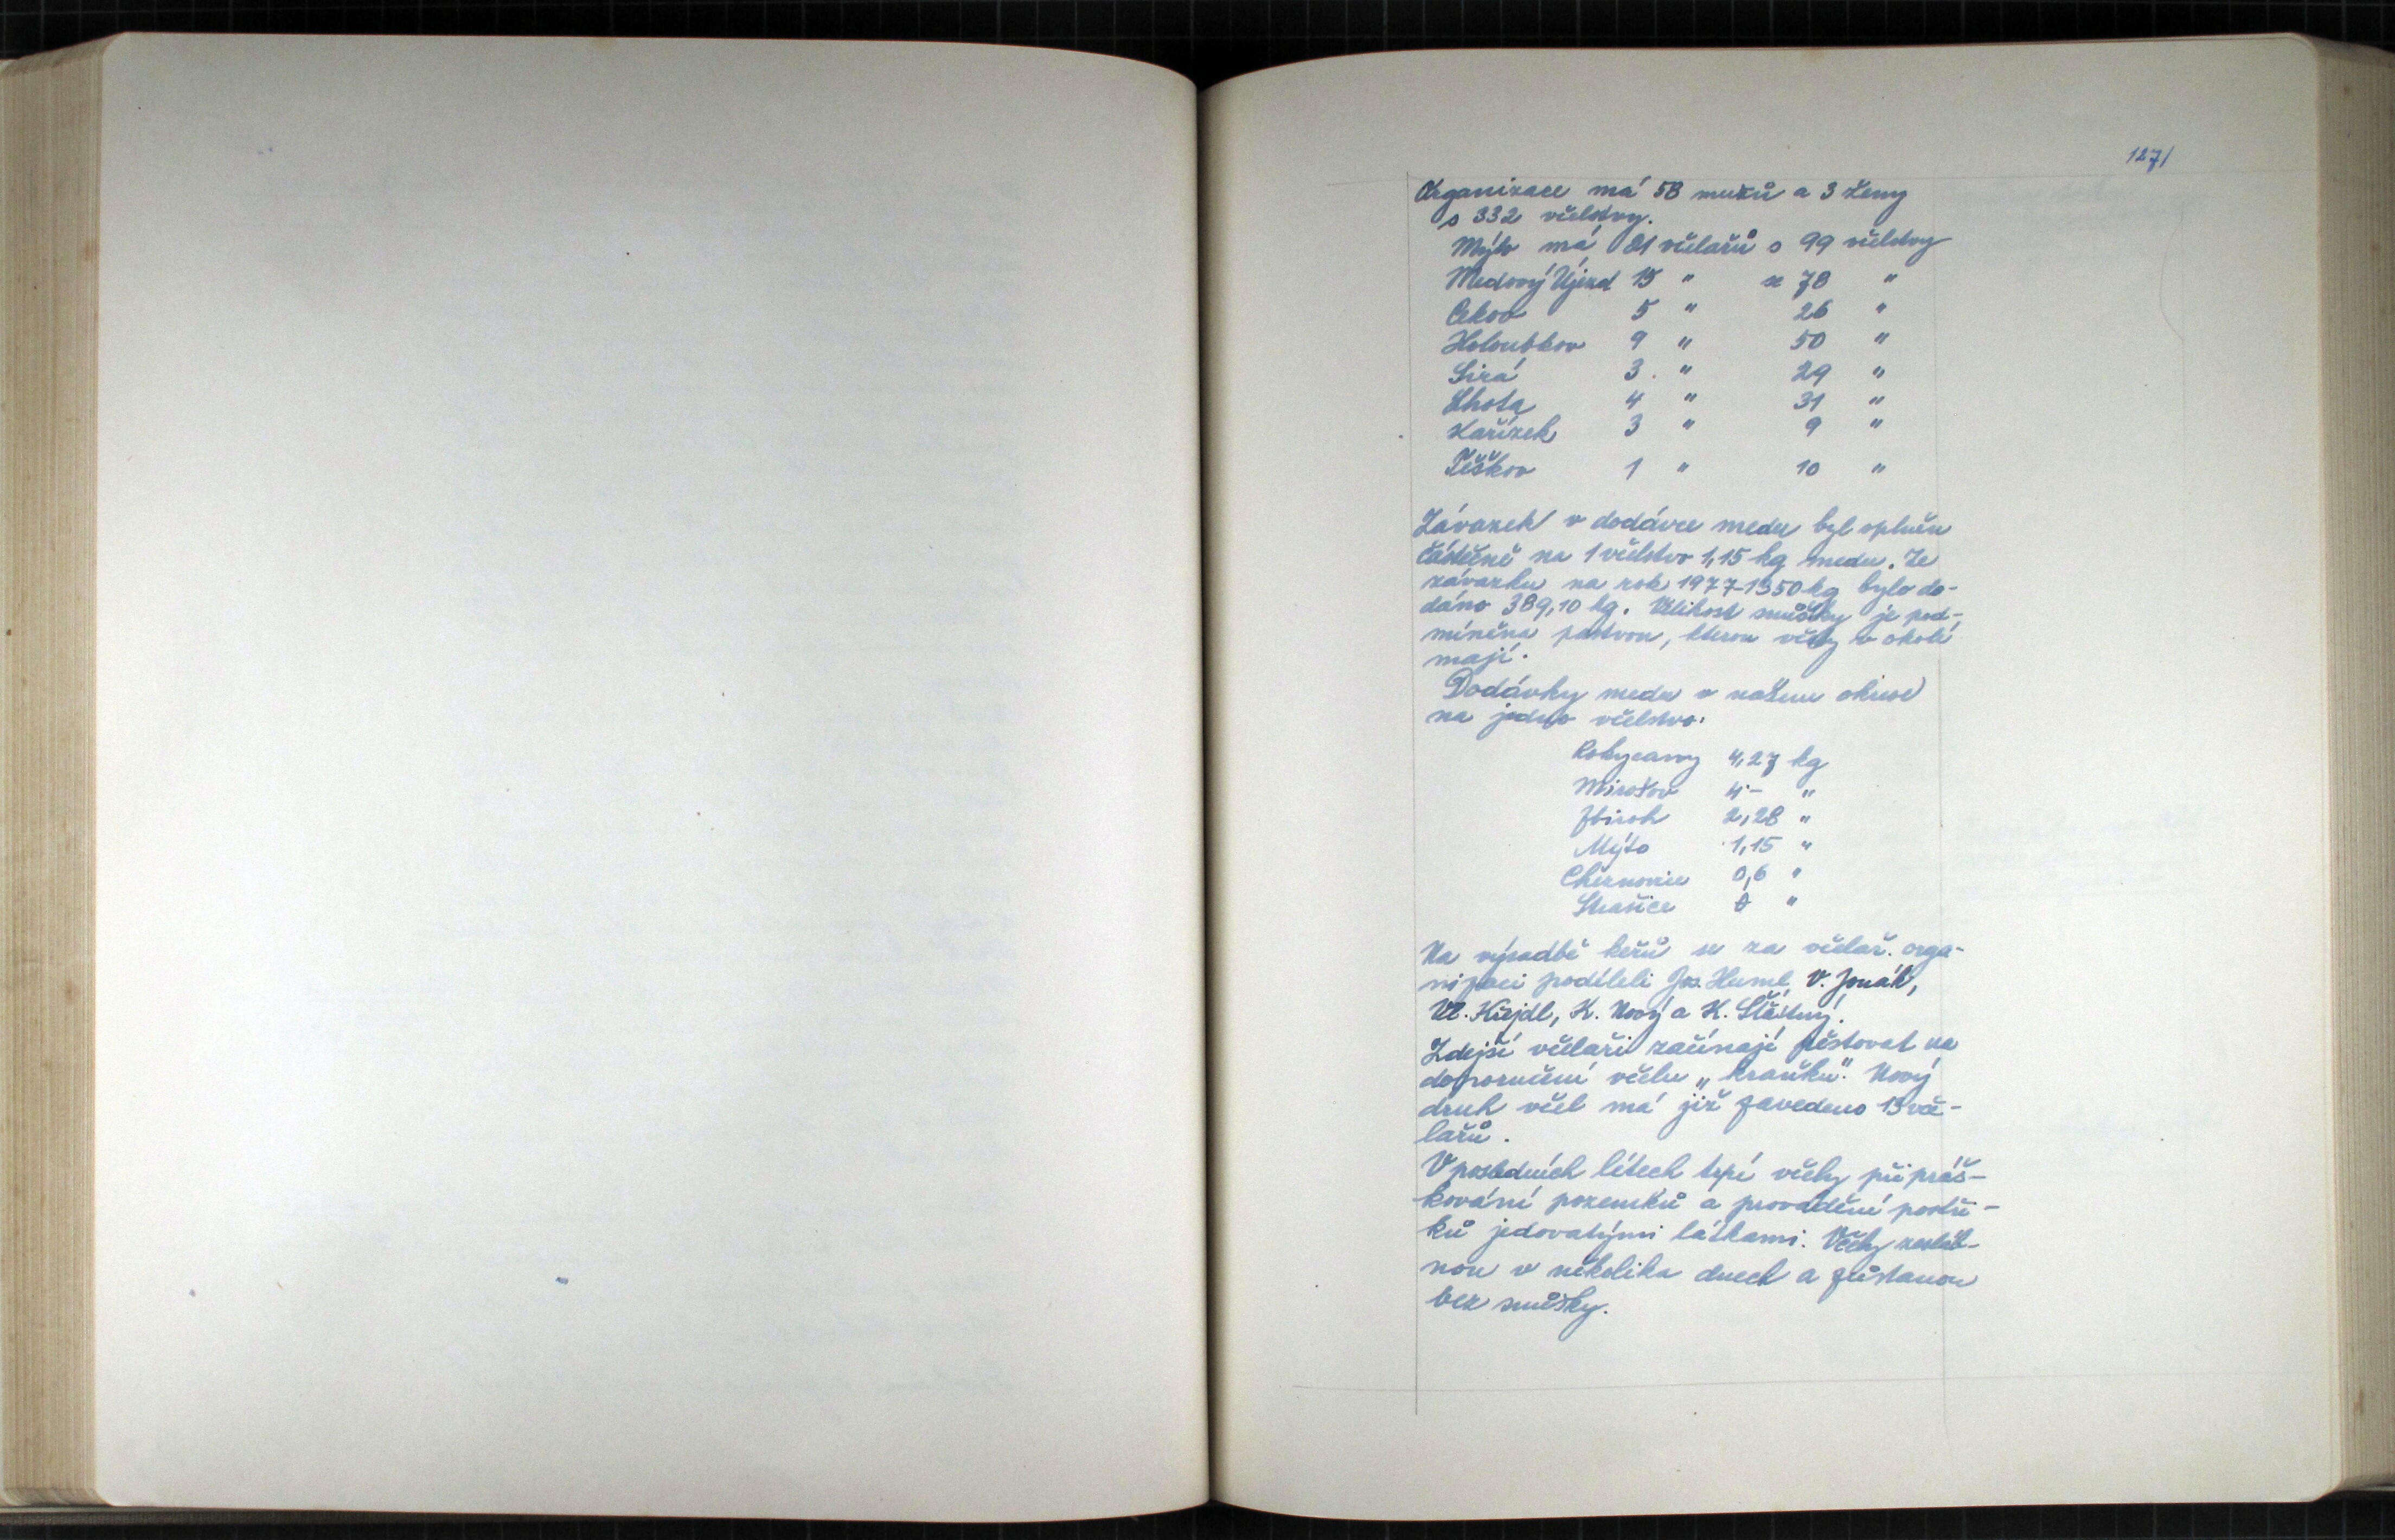 127/
Organizace má 58 mužů a 3 ženy
s 332 včelstvy.
Mýto má 21 včelařů s 99 včelstvy
Medový Újezd 15 " se 78 "
Cekov 5 " 26 "
Holoubkov 9 " 50 "
Sirá 3 " 29 "
Lhota 4 " 31 "
Kařízek 3 " 9 "
Těškov 1 " 10 "
Závazek v dodávce medu byl splněn
částečně na 1 včelstvo 1,15 kg medu. Ze
závazku na rok 1977-1350 kg bylo do-
dáno 389,10 kg. Velikost snůšky je pod-
míněna pastvou, kterou včely v okolí
mají.
Dodávky medu v našem okrese
na jedno včelstvo:
Rokycany 4,27 kg
Mirošov 4·- "
Zbiroh 2,28 "
Mýto 1,15 "
Cheznovice 0,6 "
Strašice 0 "
Na výsadbě keřů se za včelař. orga-
nizaci podíleli Jos. Huml, V. Jonák,
Vl. Krejdl, K. Nový a K. Šťastný.
Zdejší včelaři začínají pěstovat na
doporučení včelu „kraňku". Nový
druh včel má již zavedeno 15 vče-
lařů.
V posledních létech trpí včely při práš-
kování pozemků a provádění postři-
ků jedovatými látkami. Včely zesláb-
nou v několika dnech a zůstanou
bez snůšky.